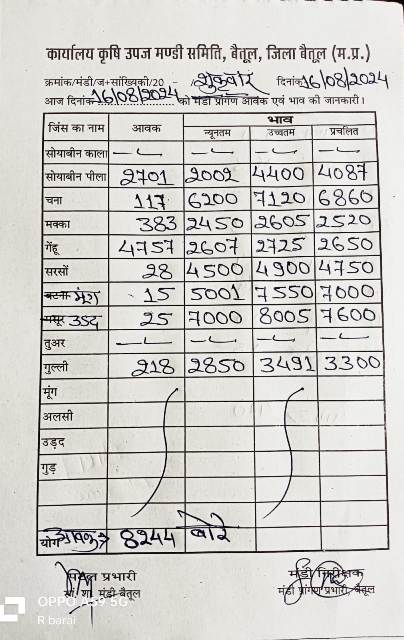 कार्यालय कृषि उपज मण्डी समिति, बैतूल, जिला बैतूल (म.प्र.)
क्रमांक/मंडी/ज+सांख्यिकी/20 - /शुक्रवार दिनांक 16/08/2024
आज दिनांक 16/08/2024 को मंडी प्रांगण आवक एवं भाव की जानकारी।
जिंस का नाम आवक भाव
न्यूनतम उच्चतम प्रचलित
सोयाबीन काला
सोयाबीन पीला 2701 2002 4400 4087
चना 117 6200 7120 6860
मक्का 383 2450 2605 2520
गेंहू 4757 2607 2725 2650
सरसों 28 4500 4900 4750
बटना मूंग 15 5001 7550 7000
मसूर उडद 25 7000 8005 7600
तुअर
गुल्ली 218 2850 3491 3300
मूंग
अलसी
उड़द
गुड़
योग आवक 8244 बोरे
प्रभारी मंडी निरीक्षक
मंडी बैतूल मंडी प्रांगण प्रभारी, बैतूल
OPPO A59 5G
R barai